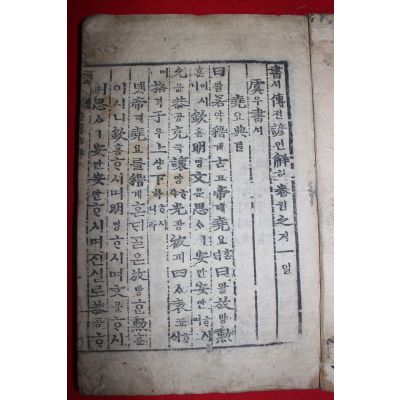 書셔傳젼諺언解ᄒᆡ卷권之지一일
虞우書셔
堯요典뎐
曰왈若약稽계古고帝뎨堯요曰왈放방勲
훈이시欽흠明명文문思ᄉᆞㅣ安안安안
允윤恭공克극讓양光광被피四ᄉᆞ表표
며格격于우上샹下하ᄒᆞ시니라
녯帝뎨堯요를稽계ᄀᆞᆯ온放방ᄒᆞᆫ勲훈
이시니欽흠ᄒᆞ시며明명ᄒᆞ시며文문ᄒᆞ시
며思ᄉᆞㅣ安안安안ᄒᆞ시며진실로恭공ᄒᆞ시